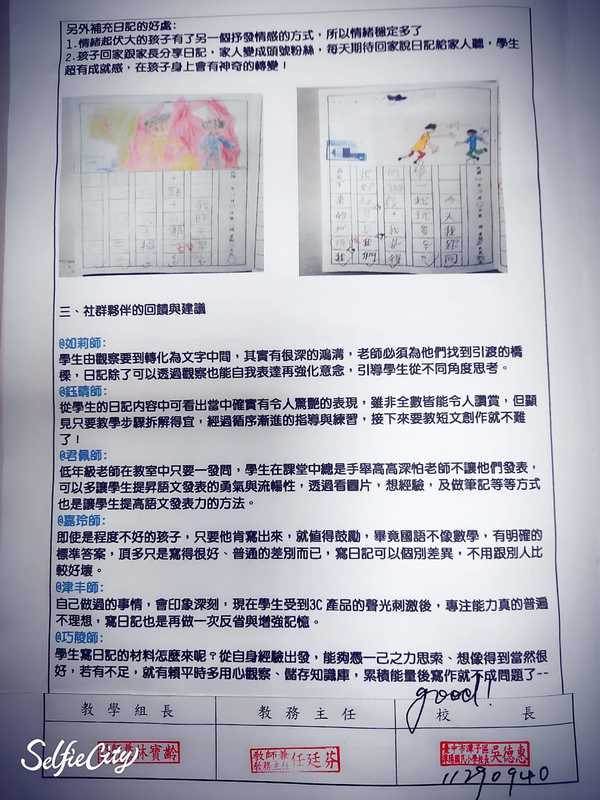 另外補充日記的好處:
1.情緒起伏大的孩子有了另一個抒發情感的方式，所以情緒穩定多了
2.孩子回家跟家長分享日記，家人變成頭號粉絲，每天期待回家說日記給家人聽，學生
超有成就感，在孩子身上會有神奇的轉變！
三、社群夥伴的回饋與建議
@如莉師:
學生由觀察要到轉化為文字中間，其實有很深的鴻溝，老師必須為他們找到引渡的橋
樑，日記除了可以透過觀察也能自我表達再強化意念，引導學生從不同角度思考。
@鈺晴師:
從學生的日記內容中可看出當中確實有令人驚艷的表現，雖非全數皆能令人讚賞，但顯
見只要教學步驟拆解得宜，經過循序漸進的指導與練習，接下來要教短文創作就不難
了！
@君佩師:
低年級老師在教室中只要一發問，學生在課堂中總是手舉高高深怕老師不讓他們發表，
可以多讓學生提昇語文發表的勇氣與流暢性，透過看圖片，想經驗，及做筆記等等方式
也是讓學生提高語文發表力的方法。
@嘉玲師:
即使是程度不好的孩子，只要他肯寫出來，就值得鼓勵，畢竟國語不像數學，有明確的
標準答案，頂多只是寫得很好、普通的差別而已，寫日記可以個別差異，不用跟別人比
較好壞。
@津丰師:
自己做過的事情，會印象深刻，現在學生受到3C 產品的聲光刺激後，專注能力真的普遍
不理想，寫日記也是再做一次反省與增強記憶。
@巧陵師:
學生寫日記的材料怎麼來呢？從自身經驗出發，能夠憑一己之力思索、想像得到當然很
好，若有不足，就有賴平時多用心觀察、儲存知識庫，累積能量後寫作就不成問題了--
good!
教 學 組 長
教 務 主 任
校 長
林寶齡
教師兼
教務主任 任廷芬
臺中市潭子區
國民小學校長 吳德惠
11290940
SelfieCity